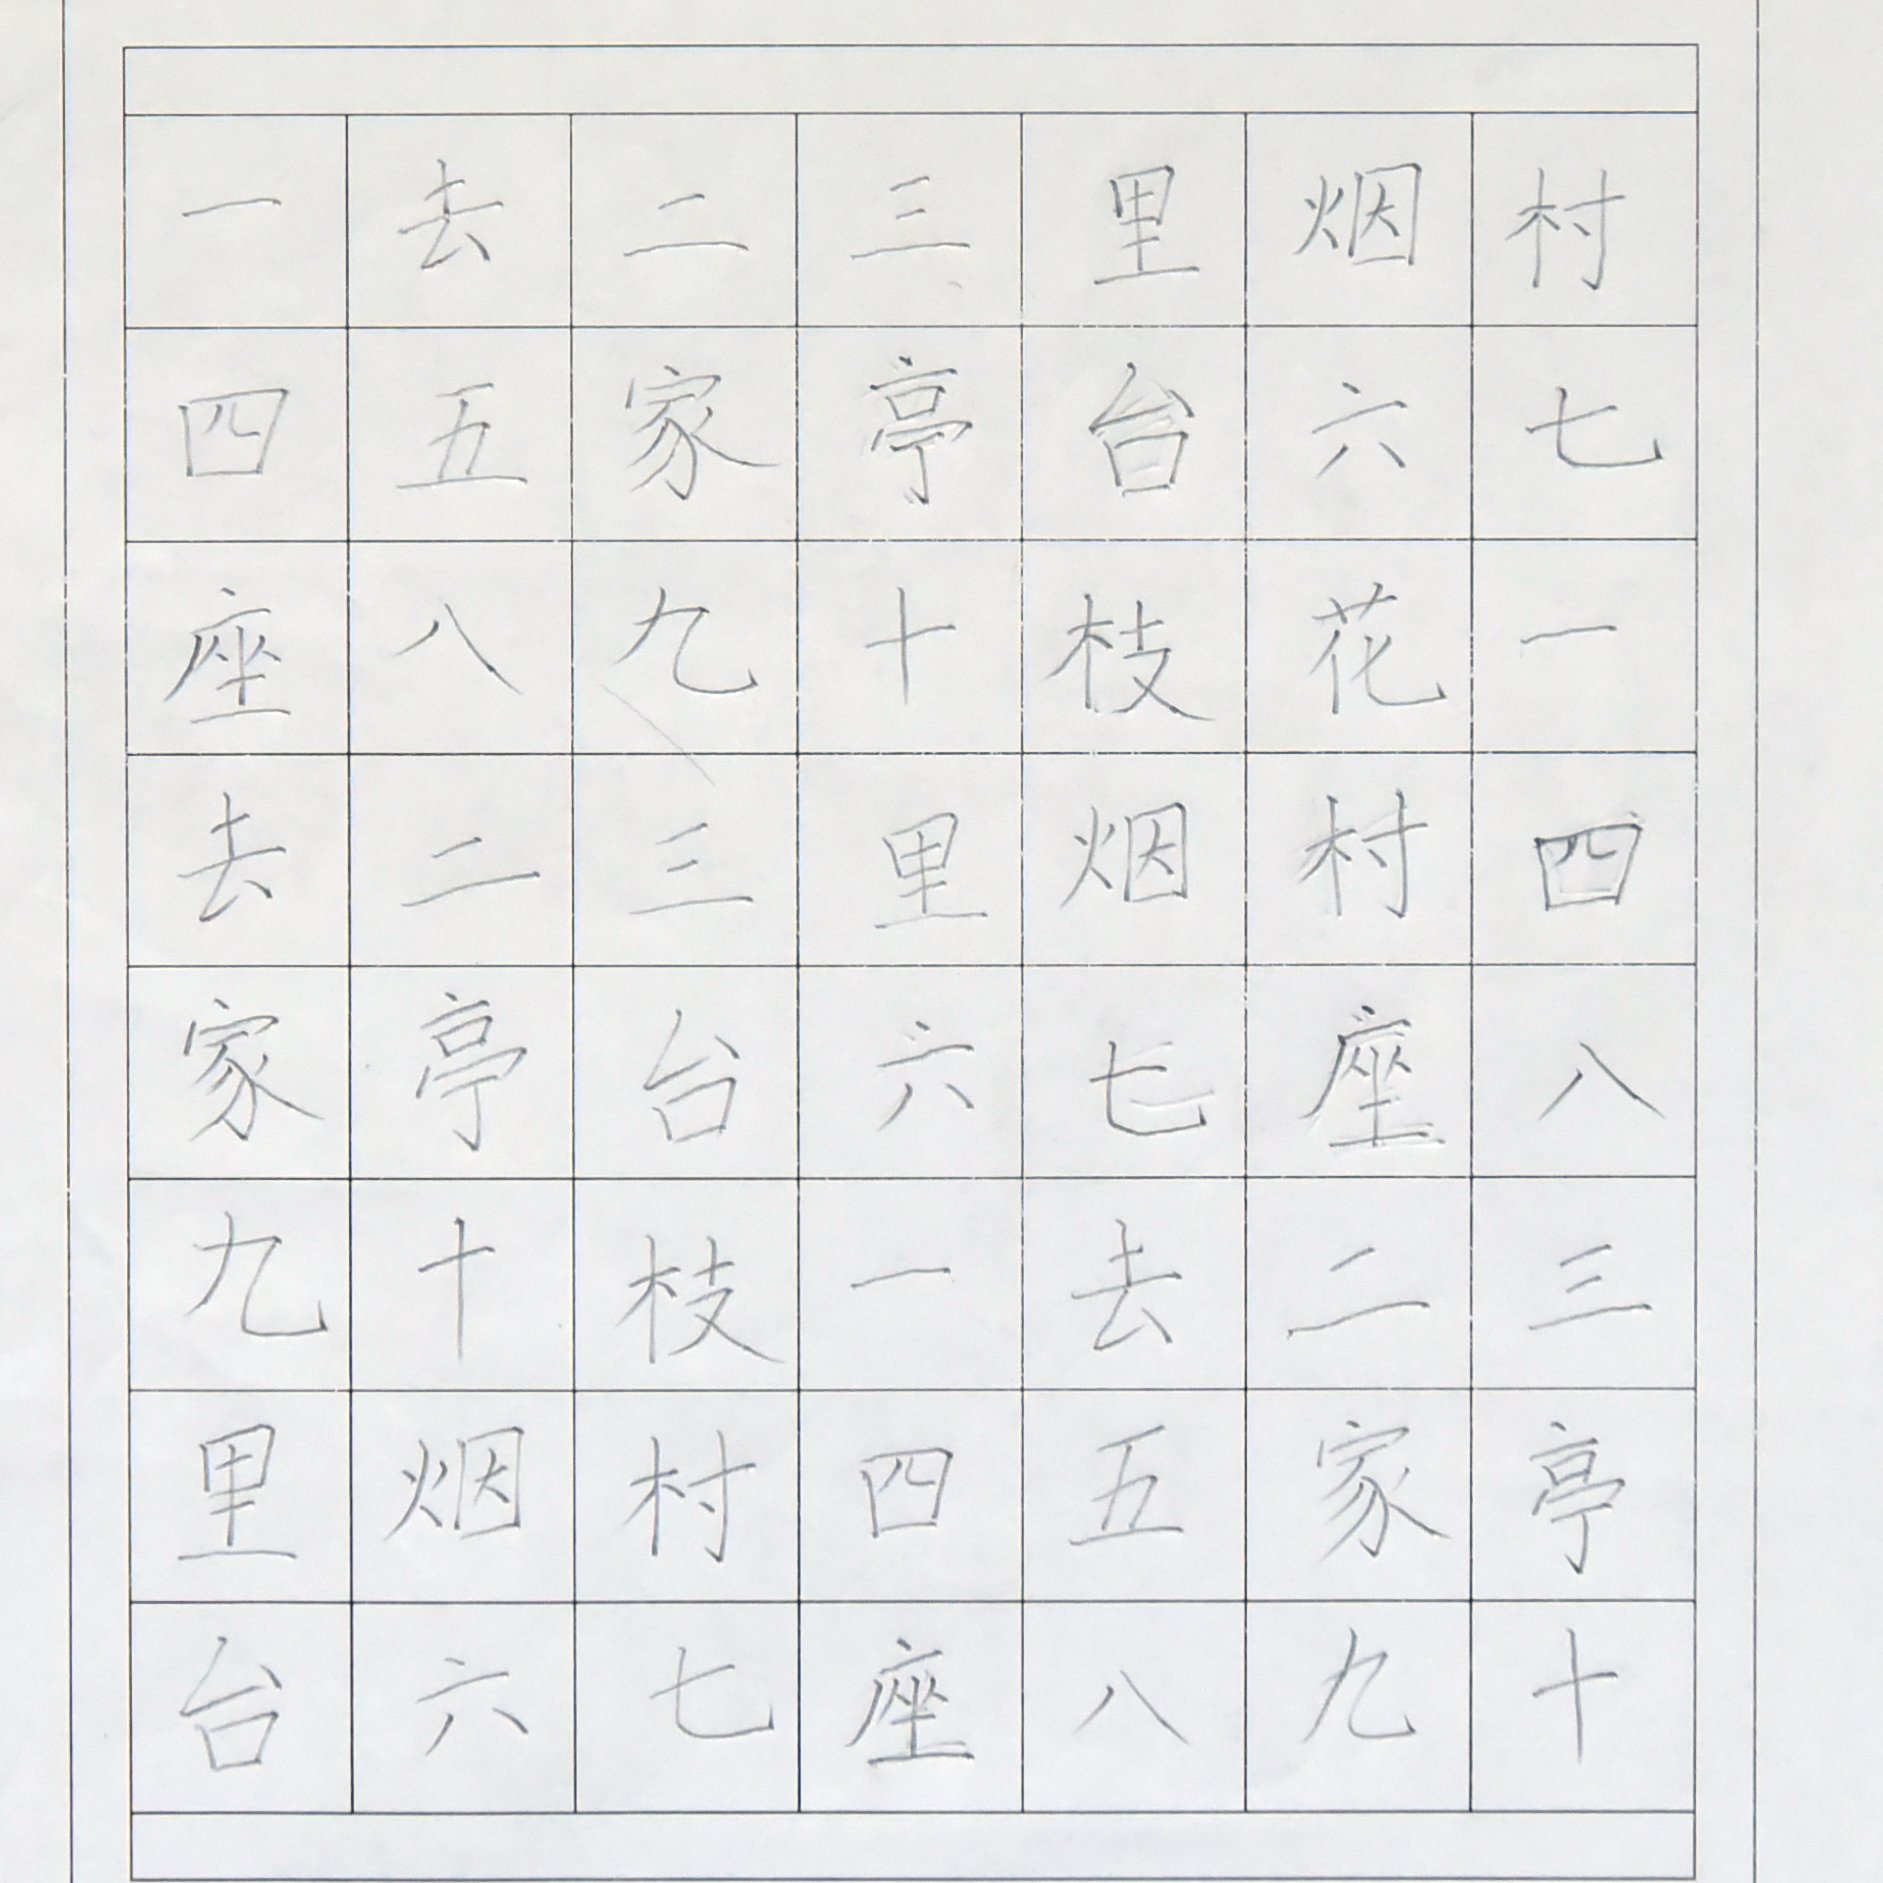 一去二三里烟村
四五家亭台六七
座八九十枝花一
去二三里烟村四
家亭台六七座八
九十枝一去二三
里烟村四五家亭
台六七座八九十